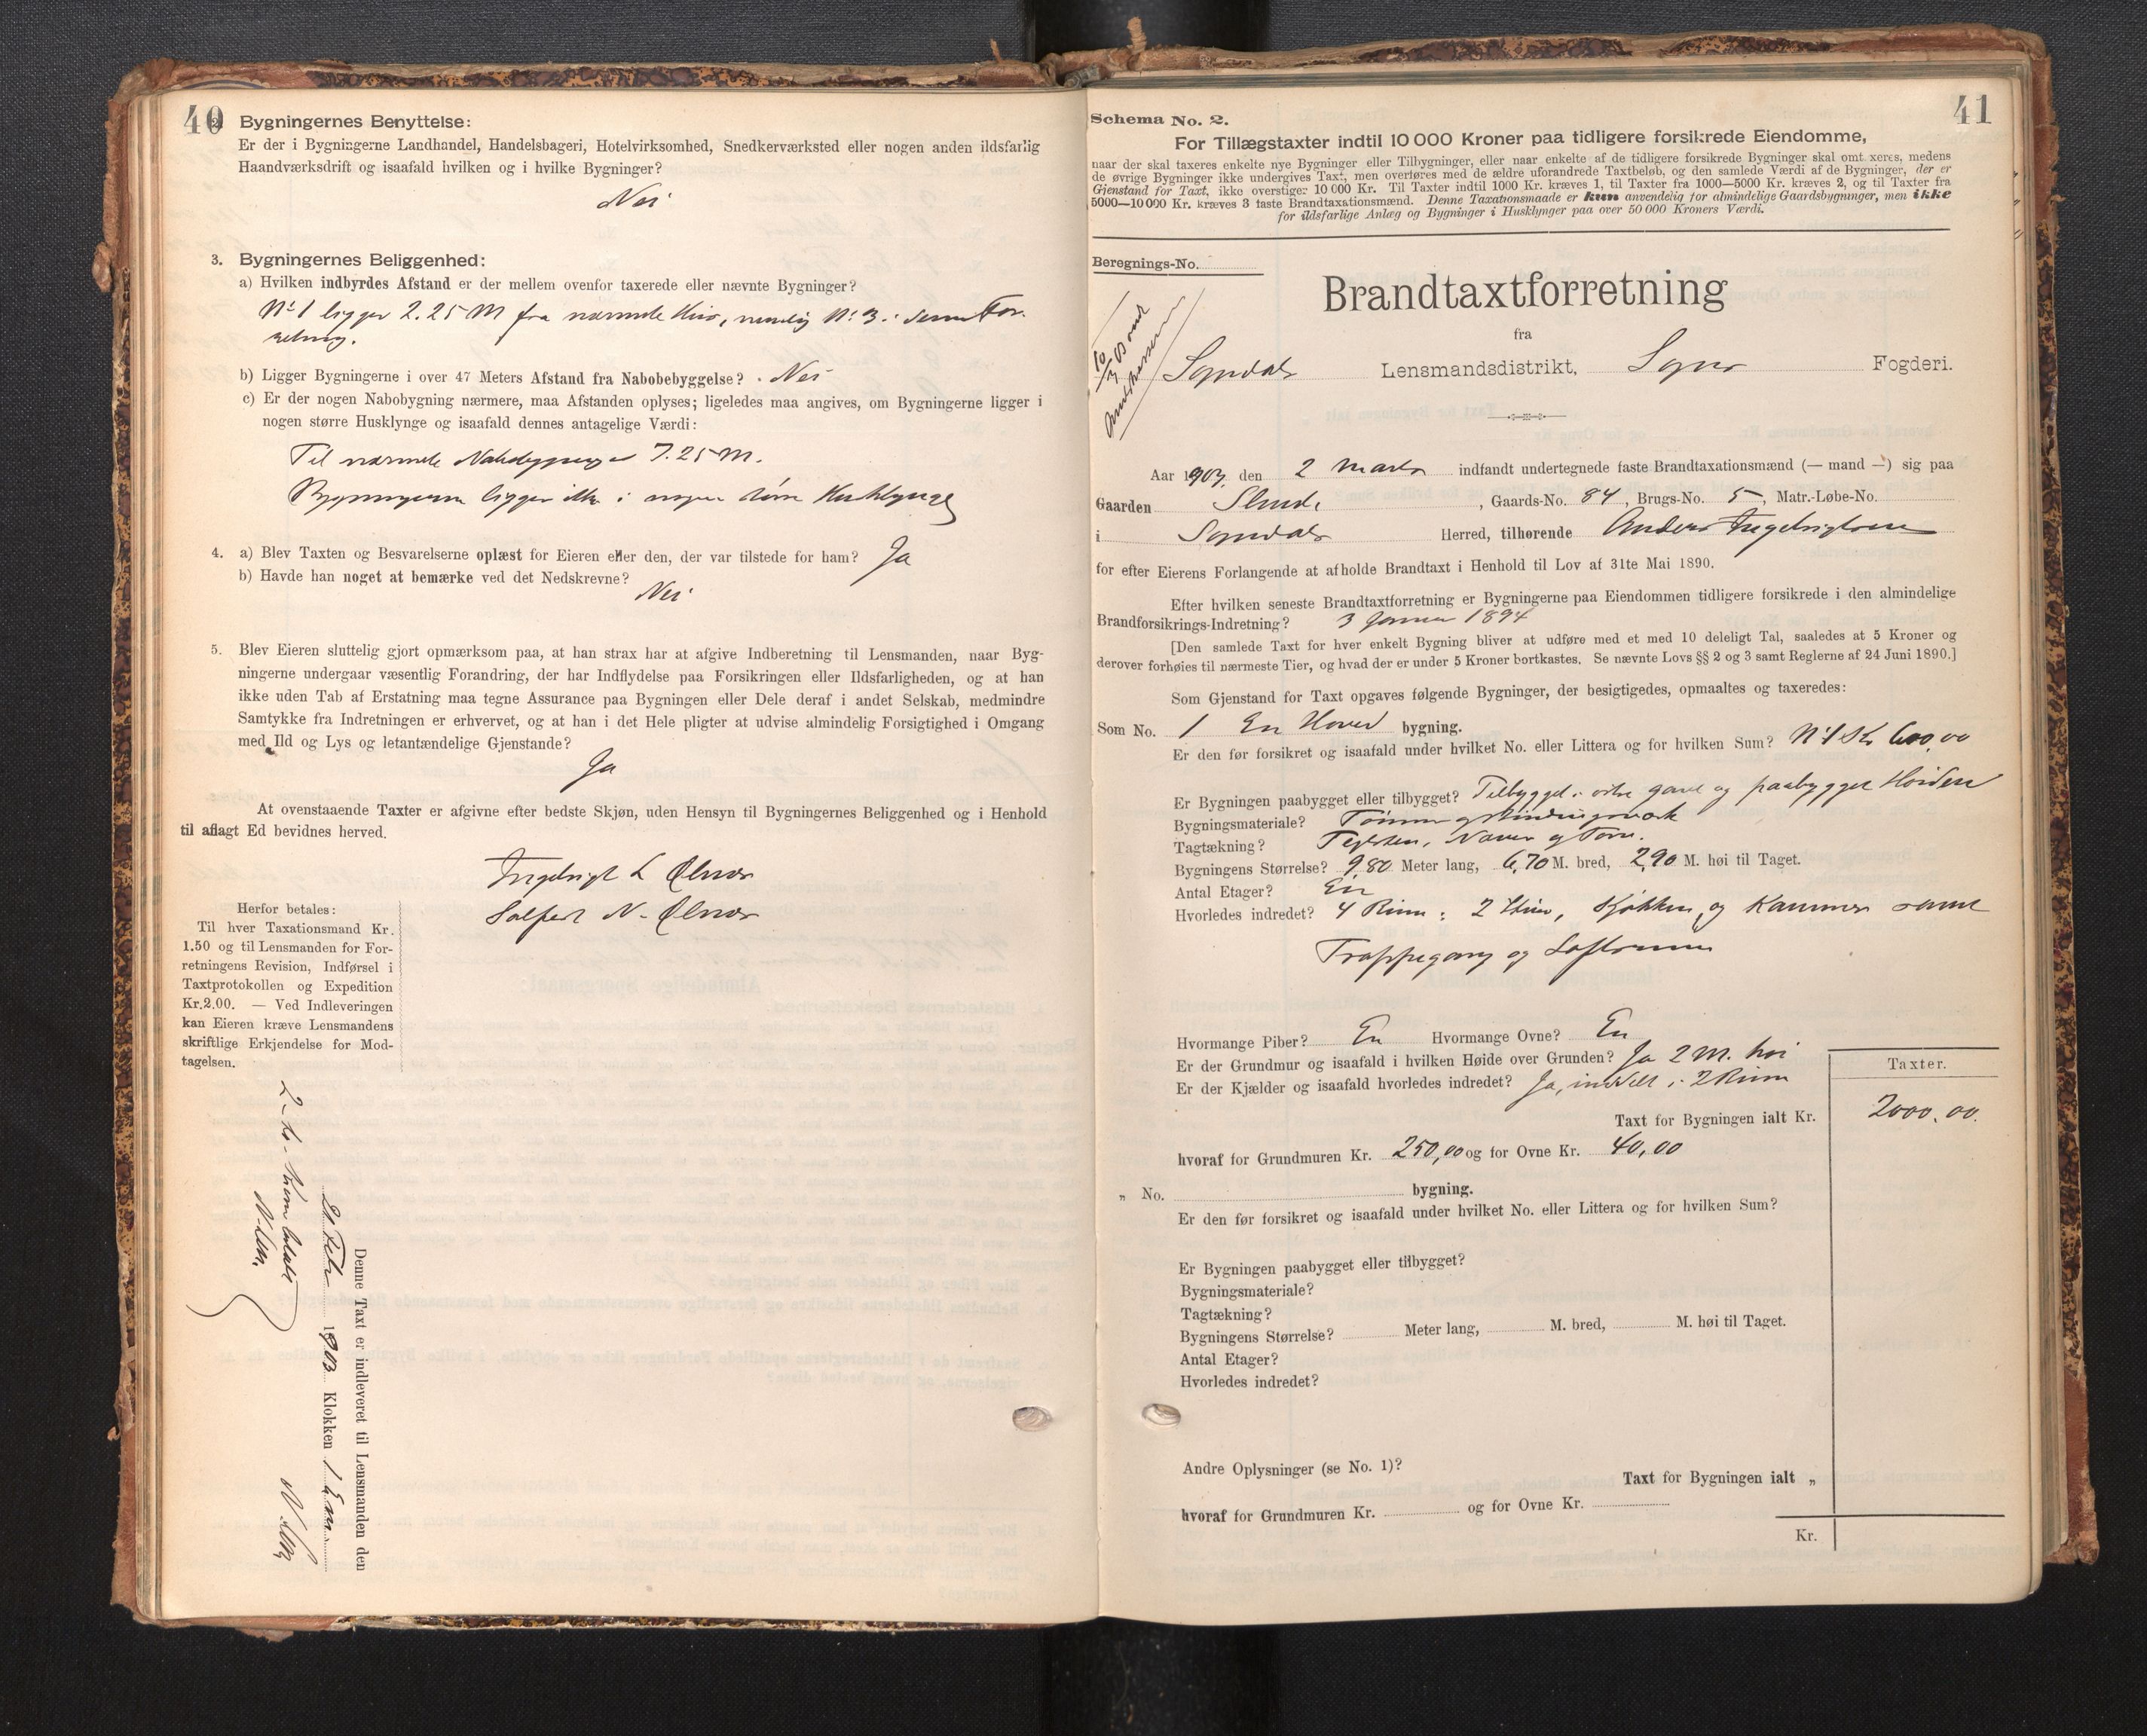 40
2. Bygningernes Benyttelse:
Er der i Bygningerne Landhandel, Handelsbageri, Hotelvirksomhed, Snedkerværksted eller nogen anden ildsfarlig
Haandværksdrift og isaafald hvilken og i hvilke Bygninger?
Nei
3. Bygningernes Beliggenhed:
a) Hvilken indbyrdes Afstand er der mellem ovenfor taxerede eller nævnte Bygninger?
No 1 ligger 2.25 M fra nærmeste Hus, nemlig No 3 i denne For-
retning.
b) Ligger Bygningerne i over 47 Meters Afstand fra Nabobebyggelse? Nei
c) Er der nogen Nabobygning nærmere, maa Afstanden oplyses; ligeledes maa angives, om Bygningerne ligger i
nogen større Husklynge og isaafald dennes antagelige Værdi:
Til nærmeste Nabobygning er 7.25 M.
Bygningerne ligger ikke i nogen større Husklynge
4. a) Blev Taxten og Besvarelserne oplæst for Eieren eller den, der var tilstede for ham? Ja
b) Havde han noget at bemærke ved det Nedskrevne?
Nei
5. Blev Eieren sluttelig gjort opmærksom paa, at han strax har at afgive Indberetning til Lensmanden, naar Byg-
ningerne undergaar væsentlig Forandring, der har Indflydelse paa Forsikringen eller Ildsfarligheden, og at han
ikke uden Tab af Erstatning maa tegne Assurance paa Bygningen eller Dele deraf i andet Selskab, medmindre
Samtykke fra Indretningen er erhvervet, og at han i det Hele pligter at udvise almindelig Forsigtighed i Omgang
med Ild og Lys og letantændelige Gjenstande?
Ja
At ovenstaaende Taxter er afgivne efter bedste Skjøn, uden Hensyn til Bygningernes Beliggenhed og i Henhold
til aflagt Ed bevidnes herved.
Ingebrigt L Ølnes
N. Ølnes
Herfor betales:
Til hver Taxationsmand Kr.
1.50 og til Lensmanden for For-
retningens Revision, Indførsel i
Taxtprotokollen og Expedition
Kr.2.00. — Ved Indleveringen
kan Eieren kræve Lensmandens
skriftlige Erkjendelse for Mod-
tagelsen.
Denne Taxt er indleveret til Lensmanden den
Febr 1903 Klokken 1 Em
2 kr
41
Schema No. 2.
For Tillægstaxter indtil 10 000 Kroner paa tidligere forsikrede Eiendomme,
naar der skal taxeres enkelte nye Bygninger eller Tilbygninger, eller naar enkelte af de tidligere forsikrede Bygninger skal omt xeres, medens
de øvrige Bygninger ikke undergives Taxt, men overføres med de ældre uforandrede Taxtbeløb, og den samlede Værdi af de Bygninger, der er
Gjenstand for Taxt, ikke overstiger 10 000 Kr. Til Taxter indtil 1000 Kr. kræves 1, til Taxter fra 1000—5000 Kr. kræves 2, og til Taxter fra
5000—10 000 Kr. kræves 3 faste Brandtaxationsmænd. Denne Taxationsmaade er kun anvendelig for almindelige Gaardsbygninger, men ikke
for ildsfarlige Anlæg og Bygninger i Husklynger paa over 50 000 Kroners Værdi.
Beregnings-No.
Brandtaxtforretning
fra
10/3 03
Sogndals Lensmandsdistrikt, Sogns Fogderi.
Aar 1903 den 2 Marts indfandt undertegnede faste Brandtaxationsmænd (— mand —) sig paa
Gaarden , Gaards-No. 84, Brugs-No. 5, Matr.-Løbe-No.
i Sogndals Herred, tilhørende Anders Ingebrigtsen
for efter Eierens Forlangende at afholde Brandtaxt i Henhold til Lov af 31te Mai 1890.
Efter hvilken seneste Brandtaxtforretning er Bygningerne paa Eiendommen tidligere forsikrede i den almindelige
Brandforsikrings-Indretning? 3 Januar 1894
[Den samlede Taxt for hver enkelt Bygning bliver at udføre med et med 10 deleligt Tal, saaledes at 5 Kroner og
derover forhøies til nærmeste Tier, og hvad der er under 5 Kroner bortkastes. Se nævnte Lovs §§ 2 og 3 samt Reglerne af 24 Juni 1890.]
Som Gjenstand for Taxt opgaves følgende Bygninger, der besigtigedes, opmaaltes og taxeredes:
Som No. 1 En Hoved bygning.
Er den før forsikret og isaafald under hvilket No. eller Littera og for hvilken Sum? No 1 Kr 600,00
Er Bygningen paabygget eller tilbygget? Tilbygget i østre gavl og paabygget Høiden
Bygningsmateriale? Tømmer og Bindingsværk
Tagtækning? Teglsten, Næver og Torv.
Bygningens Størrelse? 9,80 Meter lang, 6,70 M. bred, 2,90 M. høi til Taget.
Antal Etager? En
Hvorledes indredet? 4 Rum: 2 Stuer, Kjøkken og Kammer samt
Trappegang og Loftsrum
Hvormange Piber? En Hvormange Ovne? En
Er der Grundmur og isaafald i hvilken Høide over Grunden? Ja 2 M. høi
Er der Kjælder og isaafald hvorledes indredet? Ja, inddelt i 2 Rum
Taxter.
Taxt for Bygningen ialt Kr. 2000,00.
hvoraf for Grundmuren Kr. 250,00 og for Ovne Kr. 40,00
„ No. bygning.
Er den før forsikret og isaafald under hvilket No. eller Littera og for hvilken Sum?
Er Bygningen paabygget eller tilbygget?
Bygningsmateriale?
Tagtækning?
Bygningens Størrelse? Meter lang, M. bred, M. høi til Taget.
Antal Etager?
Hvorledes indredet?
Andre Oplysninger (se No. 1)?
Taxt for Bygningen ialt „
hvoraf for Grundmuren Kr. og for Ovne Kr.
Kr.